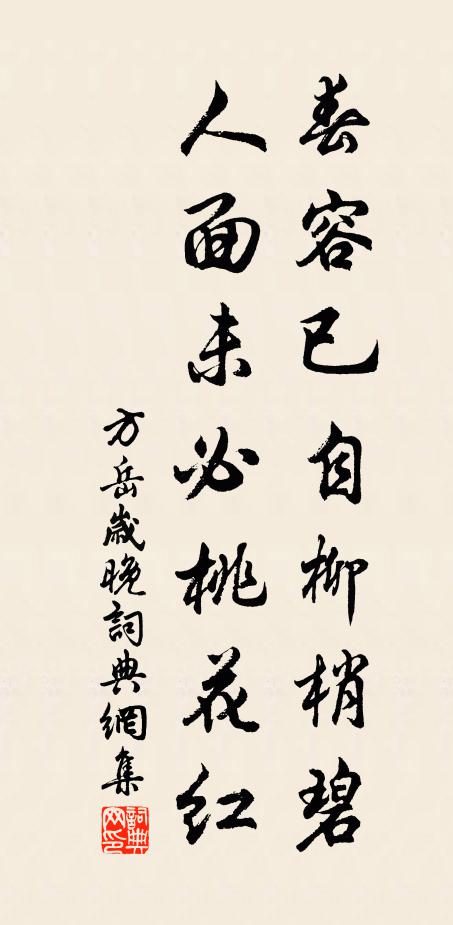 春容已自柳梢碧
人面未必桃花红
方岳歲晚詞典網集
詞典网印